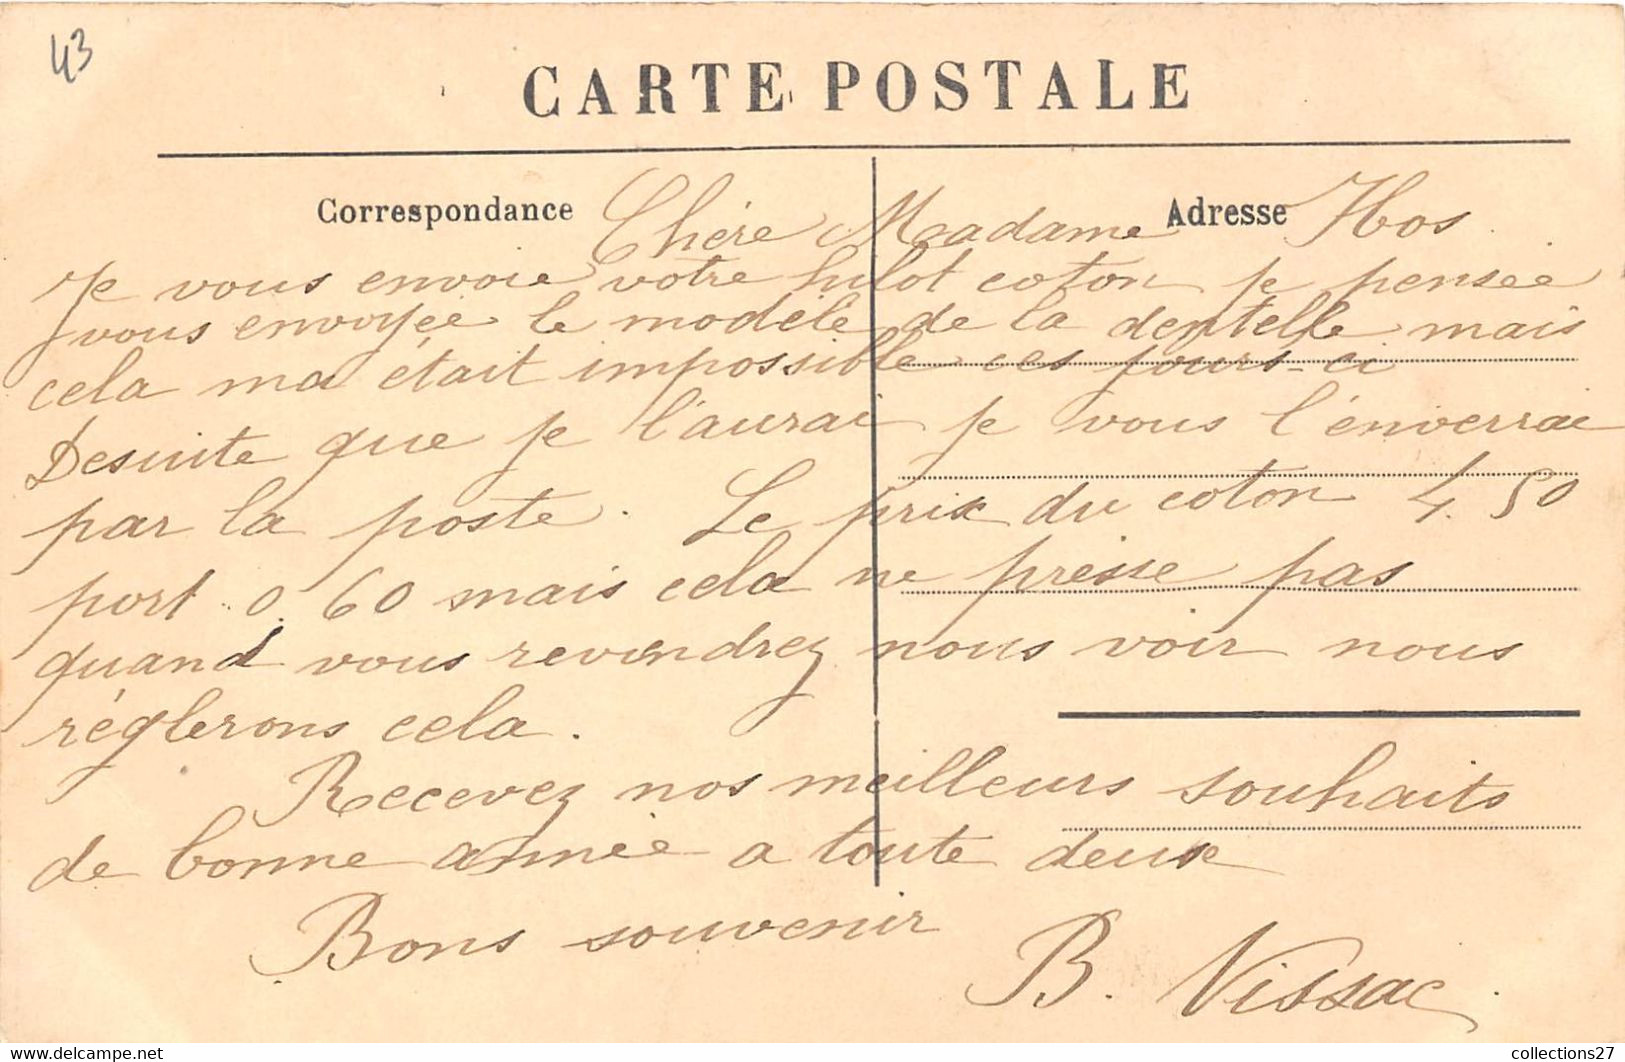 43
CARTE POSTALE
Correspondance Chère Madame Adresse Hos
Je vous envoie votre hilot coton je pensée
vous envoyée le modéle de la dentelle mais
cela ma était impossible ces jours-ci
Desuite que je l'aurai je vous l'enverrai
par la poste. Le prix du coton 4.50
port 0.60 mais cela ne presse pas
quand vous reviendrez nous voir nous
réglerons cela.
Recevez nos meilleurs souhaits
de bonne année a toute deux
Bons souvenir
B. Vissac
collections27